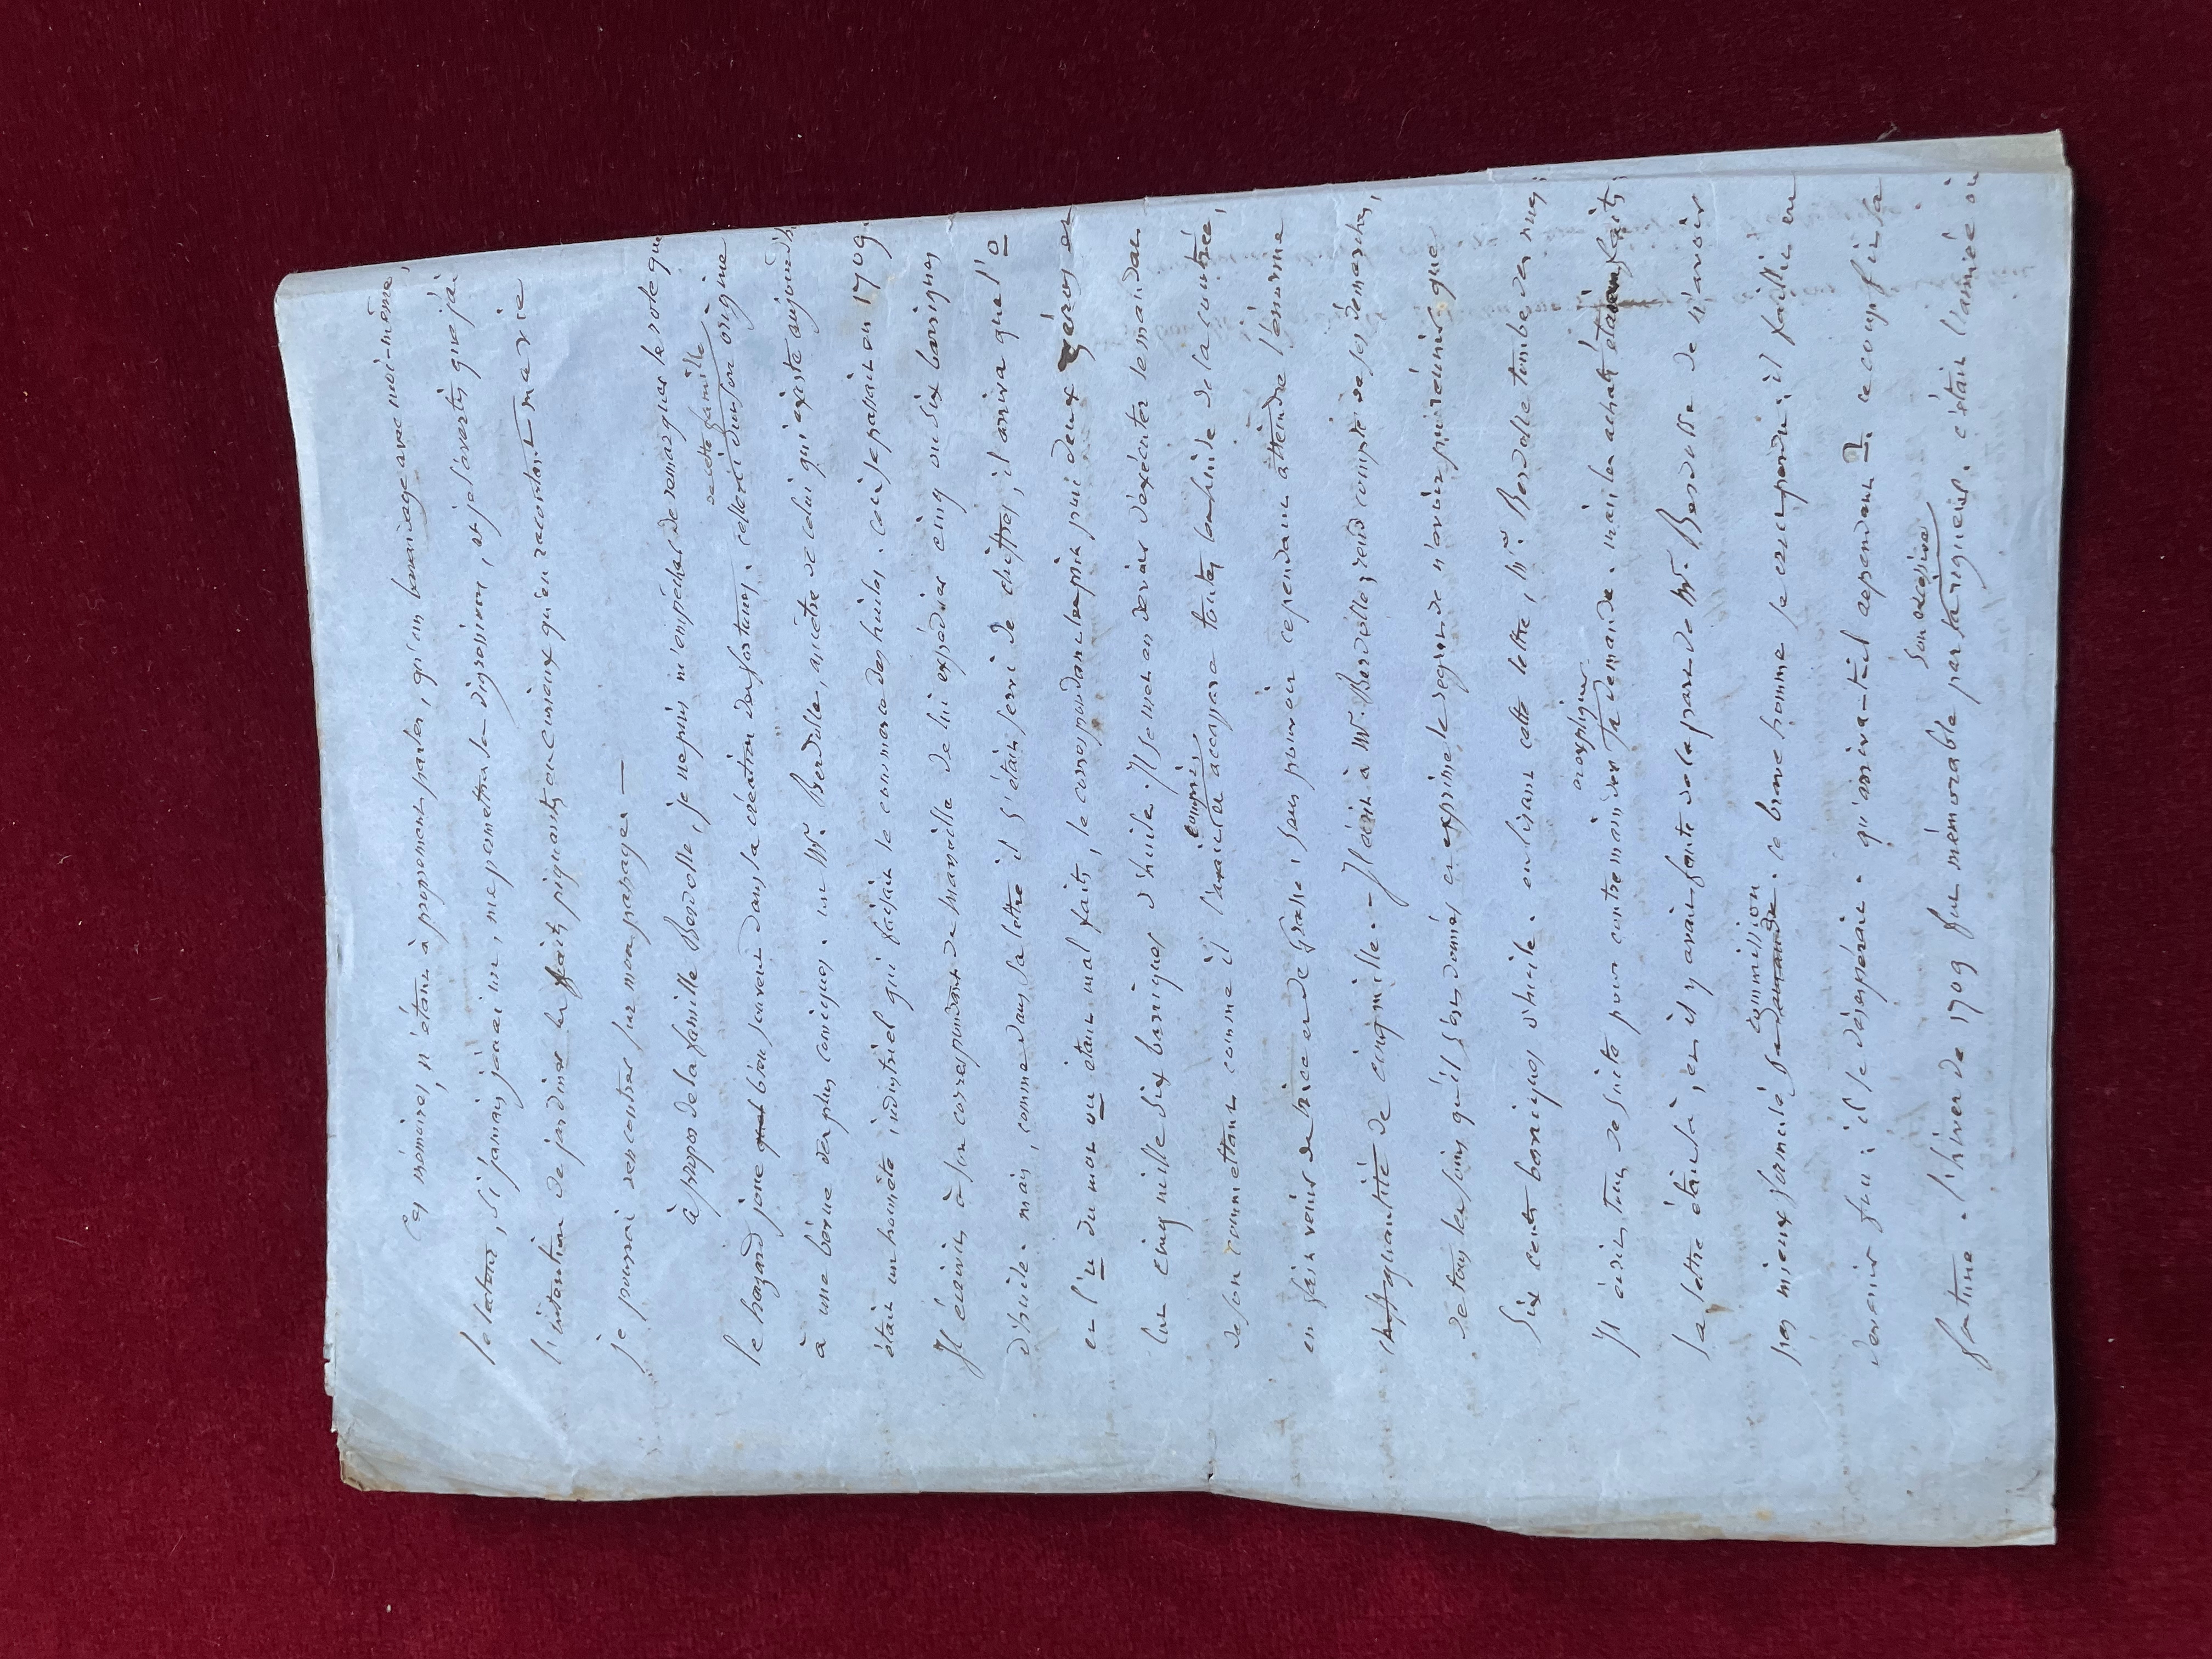 Ces mémoires, n'étant à proprement parler, qu'un bavardage avec moi-même,
le lecteur, si jamais j'en ai un, me permettra la digression, et je l'avertis que j'ai
l'intention de jardiner les faits piquants ou curieux qu'en racontant ma vie
je pourrai rencontrer sur mon passage —
à propos de la famille Berdolle, je ne puis m'empêcher de remarquer le rôle que
de cette famille
le hazard joue bien souvent dans la création des fortunes. celle ci dut son origine
à une bévue des plus comiques. un Mr. Berdolle, ancêtre de celui qui existe aujourd'h
était un honnête industriel qui faisait le commerce des huiles. ceci se passait en 1709.
Il écrivit à son correspondant de Marseille de lui expédier cinq ou six barriques
d'huile. mais, comme dans sa lettre il s'était servi de chiffres, il arriva que l'o
et l'u du mot ou étant mal faits, le correspondant les prit pour deux zéros et
lut cinq mille six barriques d'huile. Il se met en devoir d'exécuter le mandat
compris
de son commettant comme il l'avait et accapare toutes les huiles de la contrée,
en fait venir de Nice et de Grasse, sans pouvoir cependant atteindre l'énorme
quantité de cinq mille. — Il écrit à Mr. Berdolle, rend compte de ses démarches,
de tous les soins qu'il s'est donnés et exprime le regret de n'avoir pu réunir que
six cents barriques d'huile. en lisant cette lettre, Mr. Berdolle tombe des nues;
Il écrit tout de suite pour contremander sa demande. mais les achats étaient faits;
la lettre était là, et il y avait faute de la part de Mr. Berdolle de n'avoir
commission
pas mieux formulé sa demande. ce brave homme se crut perdu: il faillit en
devenir fou: il se désespérait. qu'arriva-t-il cependant? ce coup fit sa
son excessive
fortune. l'hiver de 1709 fut mémorable par sa rigueur. c'était l'année où